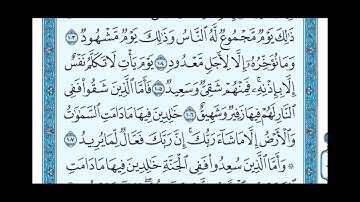 ذَٰلِكَ يَوْمٌ مَّجْمُوعٌ لَّهُ النَّاسُ وَذَٰلِكَ يَوْمٌ مَّشْهُودٌ ١٠٣
وَمَا نُؤَخِّرُهُ إِلَّا لِأَجَلٍ مَّعْدُودٍ ١٠٤ يَوْمَ يَأْتِ لَا تَكَلَّمُ نَفْسٌ
إِلَّا بِإِذْنِهِ فَمِنْهُمْ شَقِيٌّ وَسَعِيدٌ ١٠٥ فَأَمَّا الَّذِينَ شَقُوا فَفِي
النَّارِ لَهُمْ فِيهَا زَفِيرٌ وَشَهِيقٌ ١٠٦ خَالِدِينَ فِيهَا مَا دَامَتِ السَّمَاوَاتُ
وَالْأَرْضُ إِلَّا مَا شَاءَ رَبُّكَ إِنَّ رَبَّكَ فَعَّالٌ لِّمَا يُرِيدُ ١٠٧
۞ وَأَمَّا الَّذِينَ سُعِدُوا فَفِي الْجَنَّةِ خَالِدِينَ فِيهَا مَا دَامَتِ